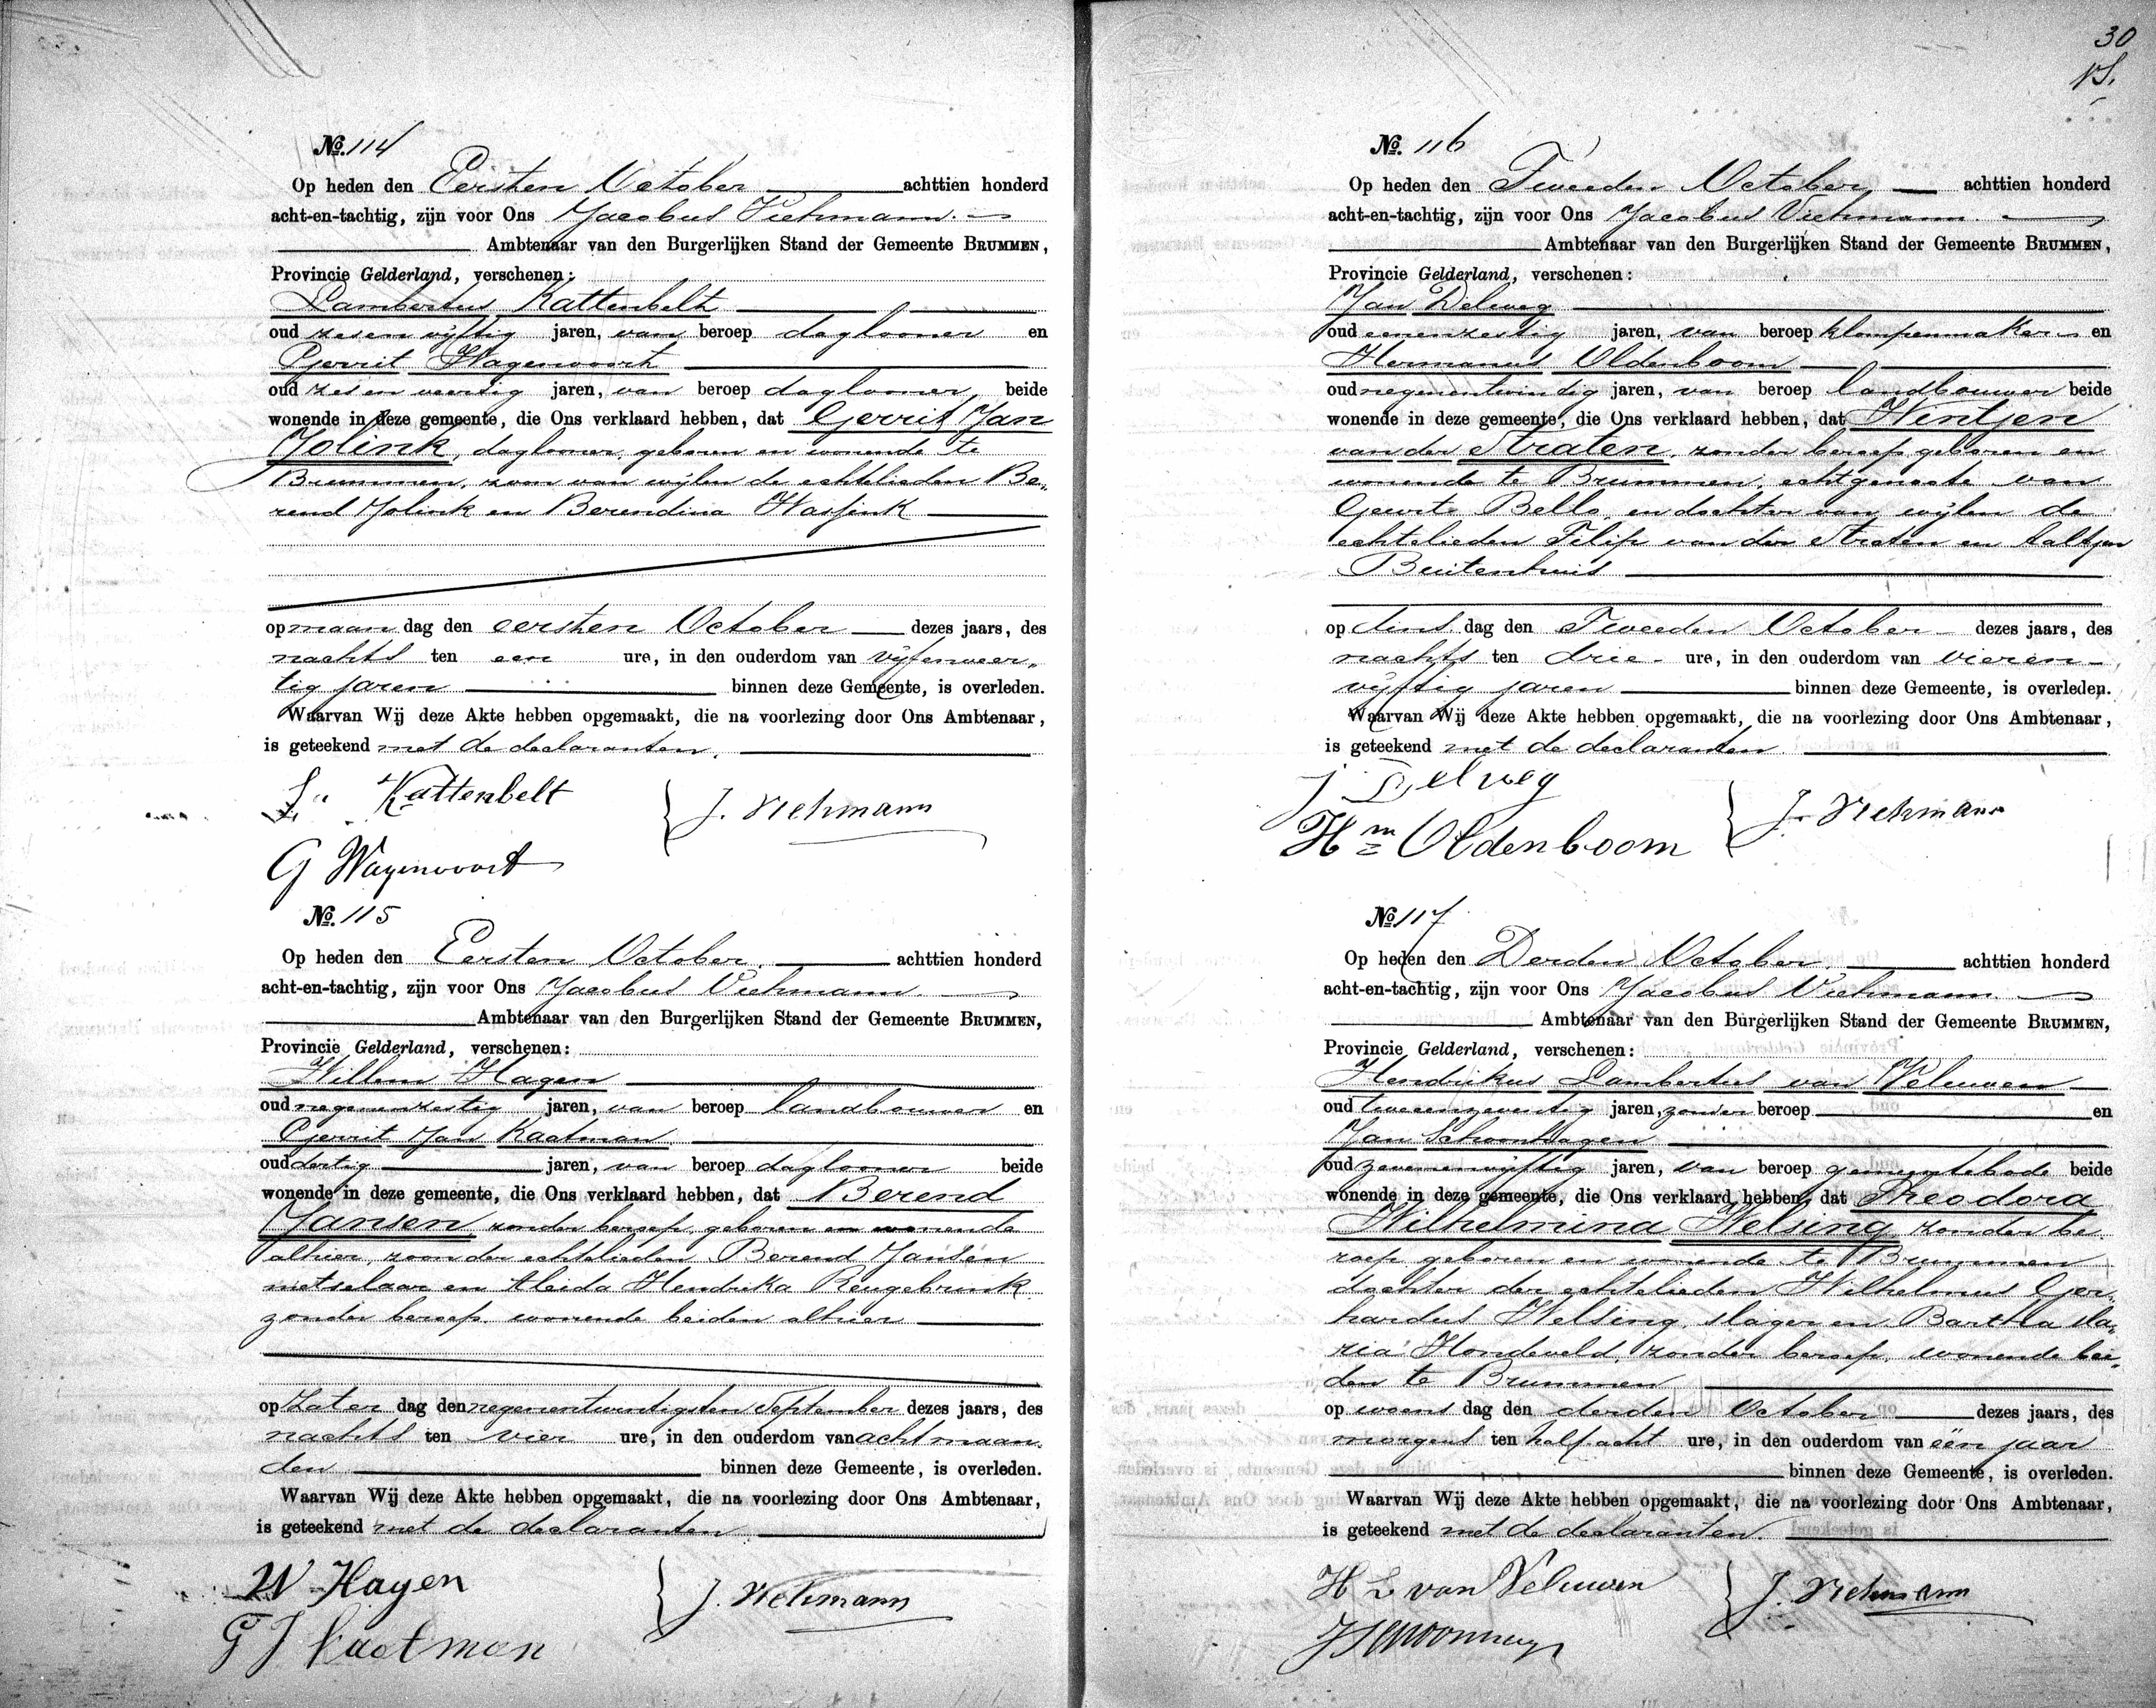 No. 114
Op heden den Eersten October achttien honderd
acht-en-tachtig, zijn voor Ons Jacobus Viehmann.
Ambtenaar van den Burgerlijken Stand der Gemeente BRUMMEN,
Provincie Gelderland, verschenen:
Lambertus Kattenbelt
oud zesenvijftig jaren, van beroep daglooner en
Gerrit Wagenvoort
oud zesenveertig jaren, van beroep daglooner, beide
wonende in deze gemeente, die Ons verklaard hebben, dat Gerrit Jan
Jolink, daglooner, geboren en wonende te
Brummen, zoon van wijlen de echtelieden Be„
rend Jolink en Berendina Hassink
op maan dag den eersten October dezes jaars, des
nachts ten een ure, in den ouderdom van vijfenveer„
tig jaren binnen deze Gemeente, is overleden.
Waarvan Wij deze Akte hebben opgemaakt, die na voorlezing door Ons Ambtenaar,
is geteekend met de declaranten.
L. Kattenbelt J. Viehmann
G Wagenvoort
No. 115
Op heden den Eersten October. achttien honderd
acht-en-tachtig, zijn voor Ons Jacobus Viehmann.
Ambtenaar van den Burgerlijken Stand der Gemeente BRUMMEN,
Provincie Gelderland, verschenen:
Willem Hagen
oud negenenzestig jaren, van beroep landbouwer en
Gerrit Jan Kaatman
oud dertig jaren, van beroep daglooner beide
wonende in deze gemeente, die Ons verklaard hebben, dat Berend
Jansen zonder beroep, geboren en wonende
alhier, zoon der echtelieden Berend Jansen
metselaar en Aleida Hendrika Reugebrink
zonder beroep, wonende beiden alhier
op Zater dag den negenentwintigsten September dezes jaars, des
nachts ten vier ure, in den ouderdom van acht maan„
den binnen deze Gemeente, is overleden.
Waarvan Wij deze Akte hebben opgemaakt, die na voorlezing door Ons Ambtenaar,
is geteekend met de declaranten
W Hagen J. Viehmann
G J Kaatman
30
No. 116
Op heden den Tweeden October achttien honderd
acht-en-tachtig, zijn voor Ons Jacobus Viehmann.
Ambtenaar van den Burgerlijken Stand der Gemeente BRUMMEN,
Provincie Gelderland, verschenen:
Jan Delweg
oud eenenzestig jaren, van beroep klompenmaker en
Hermanus Oldenboom
oud negenentwintig jaren, van beroep landbouwer beide
wonende in deze gemeente, die Ons verklaard hebben, dat Wintjen
van der Straten, zonder beroep geboren en
wonende te Brummen, echtgenoote van
Geurt Bello, en dochter van wijlen de
echtelieden Filip van der Straten en Aaltjen
Buitenhuis
op dins dag den Tweeden October dezes jaars, des
nachts ten drie ure, in den ouderdom van vieren-
vijftig jaren binnen deze Gemeente, is overleden.
Waarvan Wij deze Akte hebben opgemaakt, die na voorlezing door Ons Ambtenaar,
is geteekend met de declaranten
J Delweg
Hm Oldenboom J. Viehmann
No 117
Op heden den Derden October. achttien honderd
acht-en-tachtig, zijn voor Ons Jacobus Viehmann.
Ambtenaar van den Burgerlijken Stand der Gemeente BRUMMEN,
Provincie Gelderland, verschenen:
Hendrikus Lambertus van Veluwen
oud tweeenzeventig jaren, zonder beroep en
Jan Schoonhagen
oud zevenenvijftig jaren, van beroep gemeentebode beide
wonende in deze gemeente, die Ons verklaard hebben, dat Theodora
Wilhelmina Welsing zonder be
roep geboren en wonende te Brummen
dochter der echtelieden Wilhelmus Ger„
hardus Welsing, slager en Bartha Ma„
ria Hondeveld, zonder beroep, wonende bei„
den te Brummen
op woens dag den derden October dezes jaars, des
morgens ten half acht ure, in den ouderdom van één jaar
binnen deze Gemeente, is overleden.
Waarvan Wij deze Akte hebben opgemaakt, die na voorlezing door Ons Ambtenaar,
is geteekend met de declaranten.
H L van Veluwen J. Viehmann